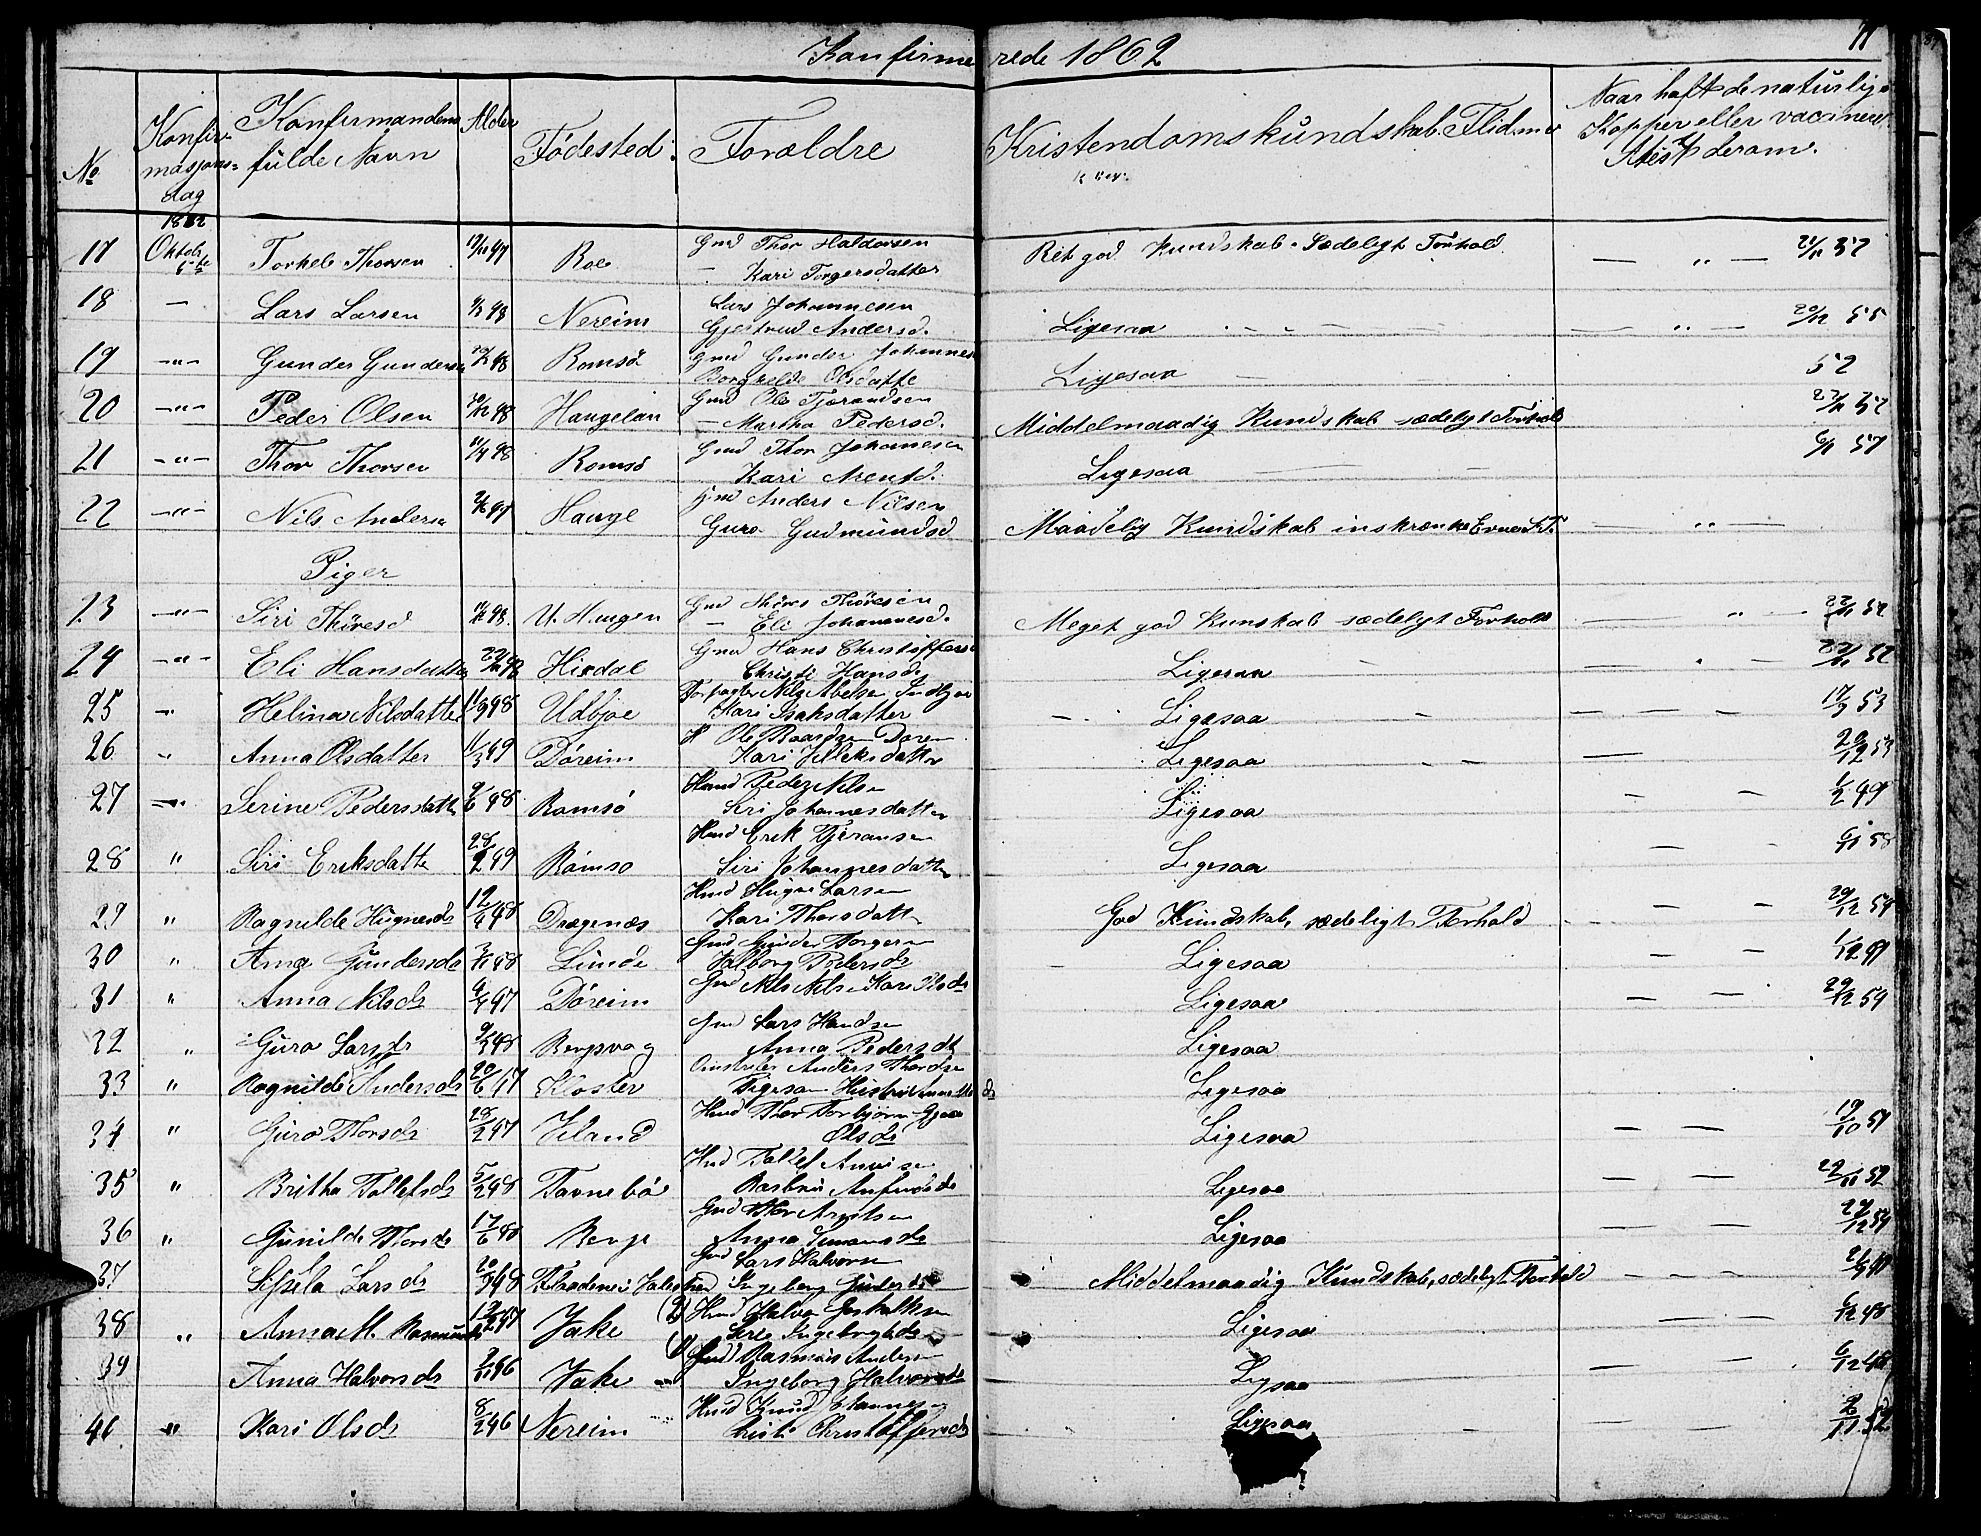 Konfirmerede 1862
11
No
Konfirmasjonsdag
Konfirmandens fulde Navn
Alder
Fødested
Forældre
Kristendomskundskab. Flid m.v.
Naar haft de naturlige Kopper eller vaccineret. Attest derom.
1862
17 Oktob. Torkel Thorsen 47 Roe Gmd Thor Haldorsen
— Kari Torgersdatter
Ret god Kundskab. Sædeligt Forhold — " — 21/11 52
18 — Lars Larsen 48 Nereim Lars Johannesen
Gjertrud Andersd.
Ligesaa — " — 20/12 55
19 —"— Gunder Gundersen 48 Romsø Gmd Gunder Johannes
Borghilde Olsdatte
Ligesaa 52
20 —"— Peder Olsen 48 Haugelan Gmd Ole Tjerandsen
— Martha Pedersd.
Middelmaadig Kundskab sædeligt Forhold 52
21 —"— Thor Thorsen 48 Romsø Gmd Thor Johannesen
Kari
Ligesaa 57
22 —"— Nils Andersen 47 Hauge Gmd Anders Nilsen
Guro Gudmundsd
Maadelig Kundskab inskrænke Evner S.F. — " —
Piger
23 —"— Siri Thøresd 48. U. Haugen Gmd Thøres Thøresen
— Eli Johannesd.
Meget god Kunskab sædeligt Forhold — " — 22/11 52
24 —"— Eli Hansdatter 22/10 48 Hisdal Gmd Hans Christoffers
Christi Hansd.
Ligesaa 52
25 " Helina Nilsdatter 48 Udbjoe Nils Abelsen
Kari Isaksdatter
Ligesaa — — — 17/9 53
26 " Anna Olsdatter 11/3 49 Døreim Ole Baardsen Døreim
Kari
Ligesaa — 20/12 53
27 —"— Serine Pedersdatte 9/6 48 Romsö Husmd Peder Nilsen
Siri Johannesdatter
Ligesaa — — 1/2 49
28 " Siri Eriksdatte 28/2 49 Romso Husmd Erik Tjeransen
Siri Johannesdatter
Ligesaa — — 6/11 58
29 " Ragnilde Hugnesds 12/4 48 Dragenæs Husmd Hugne Larsen
Kari Thorsdatt
God Kundskab, sædeligt Forhold — — 20/12 54
30 " Anna Gundersds 48 Lunde Gmd Gunder Torgersen
Valborg Pedersds
Ligesaa — 1/12 49
31 " Anna Nilsds 47 Døreim Gmd Nils Nilsen Kari Olsds
Ligesaa — — 29/12 54
32 " Guro Larsds 48 Bergsvag Gmd Lars Handsen
Anna Pedersdt
Ligesaa
33 " Ragnilde Andersds 20/6 47 Kloster Anders Thordsen
Ligesaa
34 " Guro Thorsds 28/2 47 Veland Husmd Thor Torbjørn
Olsds
Ligesaa — — 19/10 54
35 " Britha Tollefsds 5/2 48 Favnebø Husmd Tollef
Ligesaa — — 22/11 52
36 " Gunilde Thorsds 17/6 48 Berge Gmd Thor
Anna Simonsds
Ligesaa — — 29/12 54
37 Sissela Larsds 20/9 48 Gmd Lars Halvorsen
Ingeborg Gundersds
Middelmaadig Kundskab, sædeligt Forhold — — —
38 " Anna M. Rasmusds 47 Vake (2) Husmd Halvor
Siri Ingebrigtsds
Ligesaa — — 6/12 48
39 Anna Halvorsds 46 Vake (1) Gmd Rasmus Andersen
Ingeborg Halvorsds
Ligsaa — — 6/12 48
41 " Kari Olsds 8/2 46 Nereim Husmd Knud
Kristi Christoffersds
Ligesaa 2/11 52